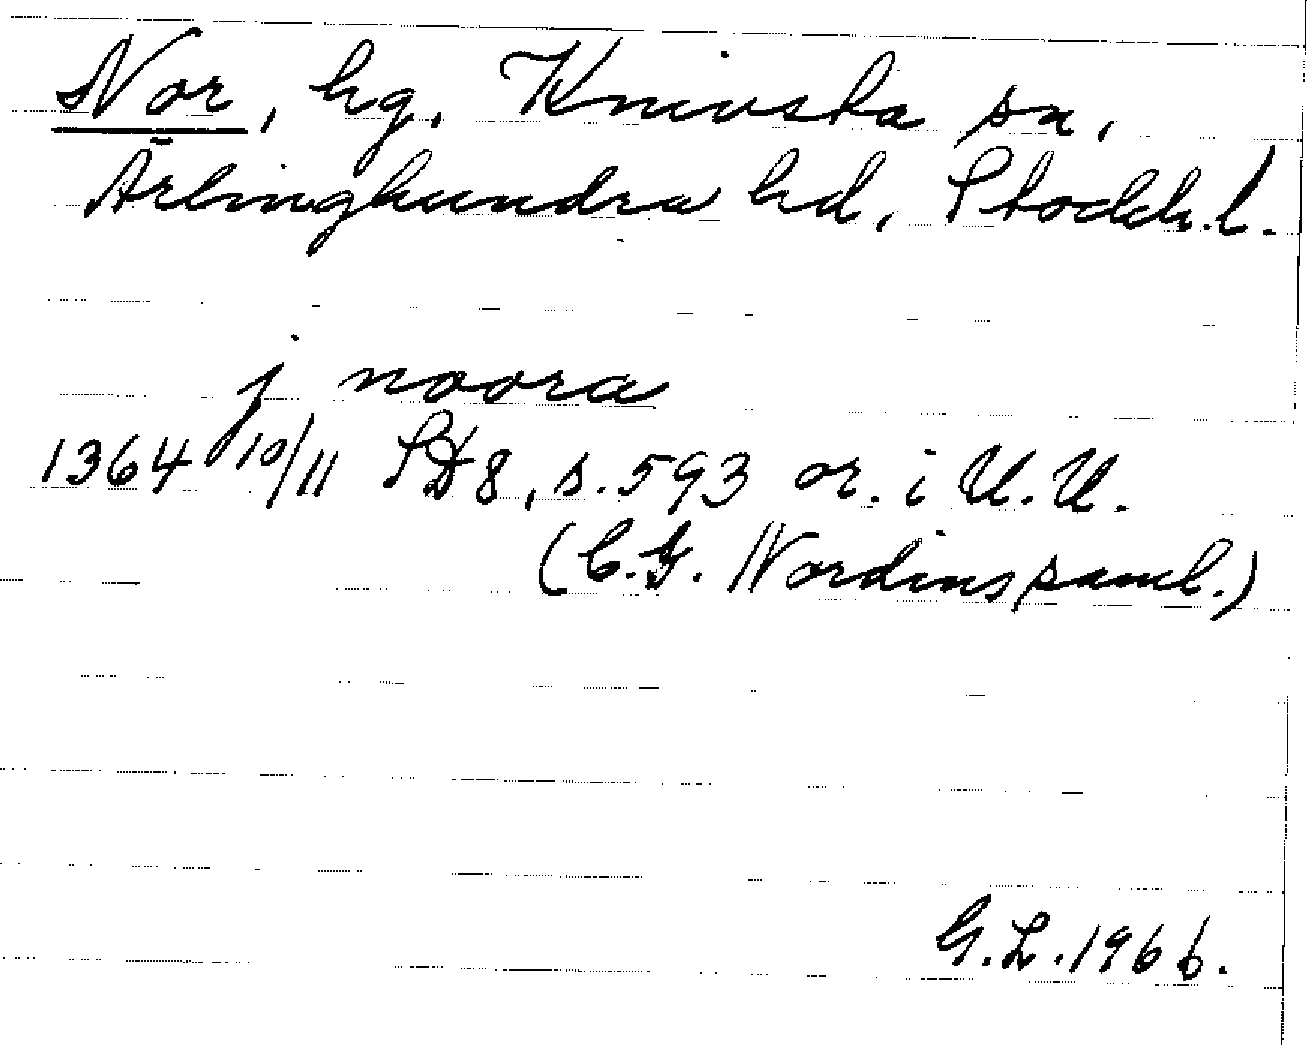 Nor, hg, Knivsta sn,
Ärlinghundra hd, Stockh.l.
j noora
1364 10/11 SD8, s.593 or. i U.U.
(C.G. Nordins saml.)
G.L.1966.